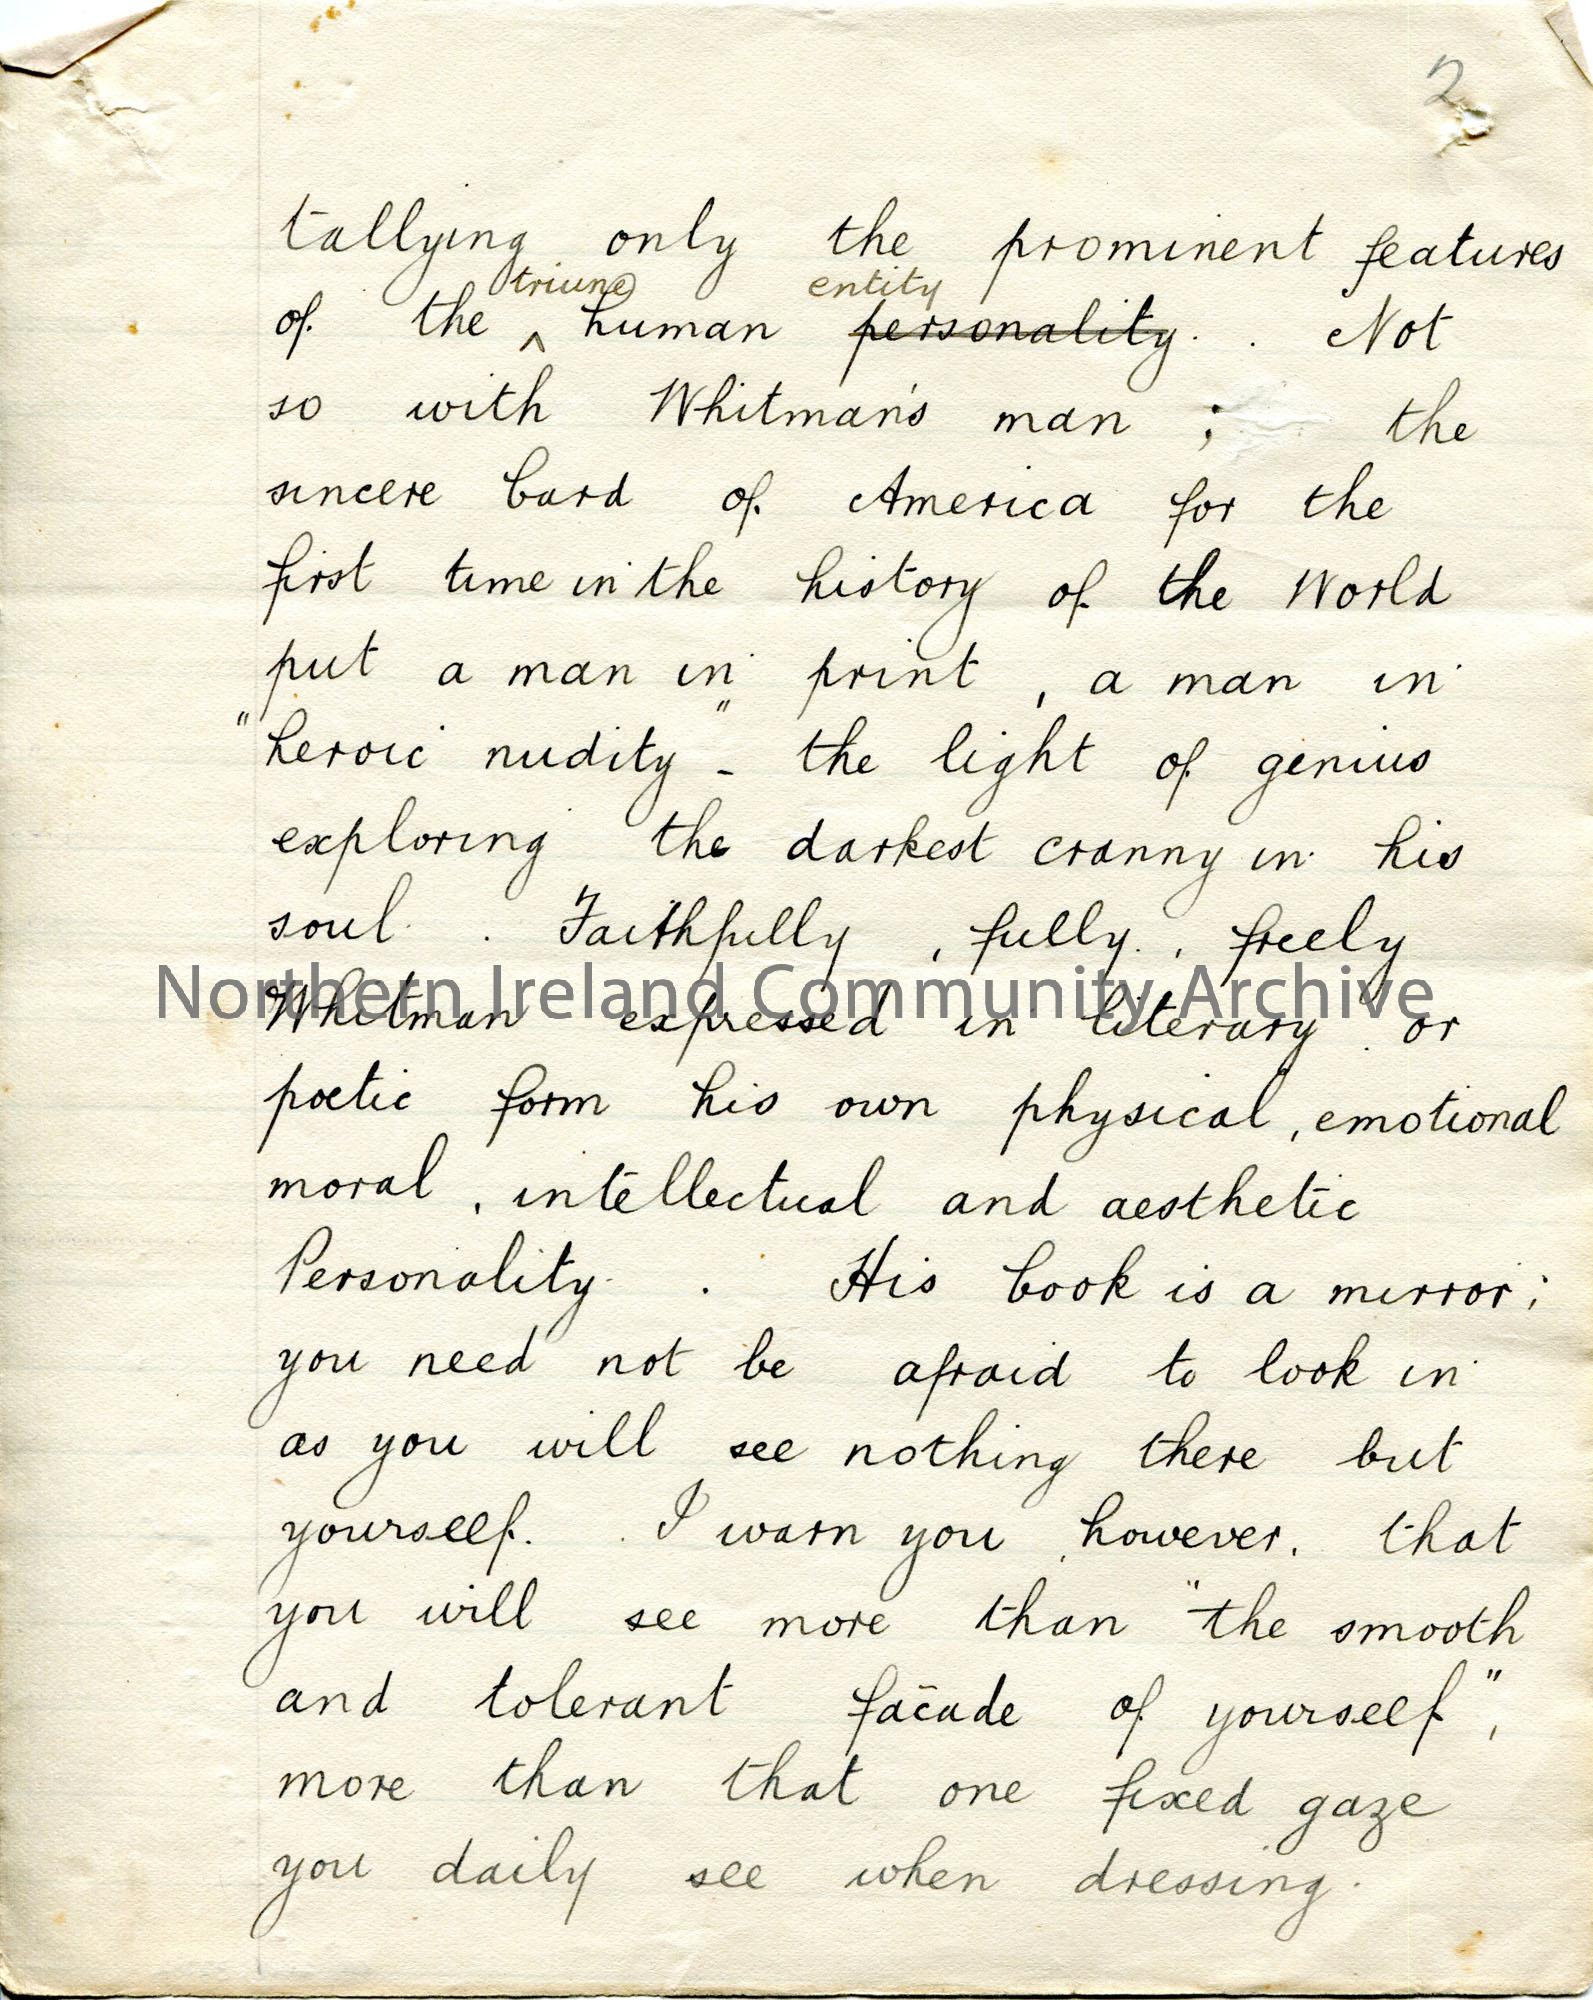 2
tallying only the prominent features
triune entity
of the ^ human personality. . Not
so with Whitman's man ; the
sincere bard of America for the
first time in the history of the World
put a man in print , a man in
"heroic nudity" - the light of genius
exploring the darkest cranny in his
soul . Faithfully , fully , freely
Northern Ireland Community Archive
Whitman expressed in literary or
poetic form his own physical , emotional
moral , intellectual and aesthetic
Personality . His book is a mirror ;
you need not be afraid to look in
as you will see nothing there but
yourself. . I warn you , however, that
you will see more than "the smooth
and tolerant façade of yourself",
more than that one fixed gaze
you daily see when dressing.